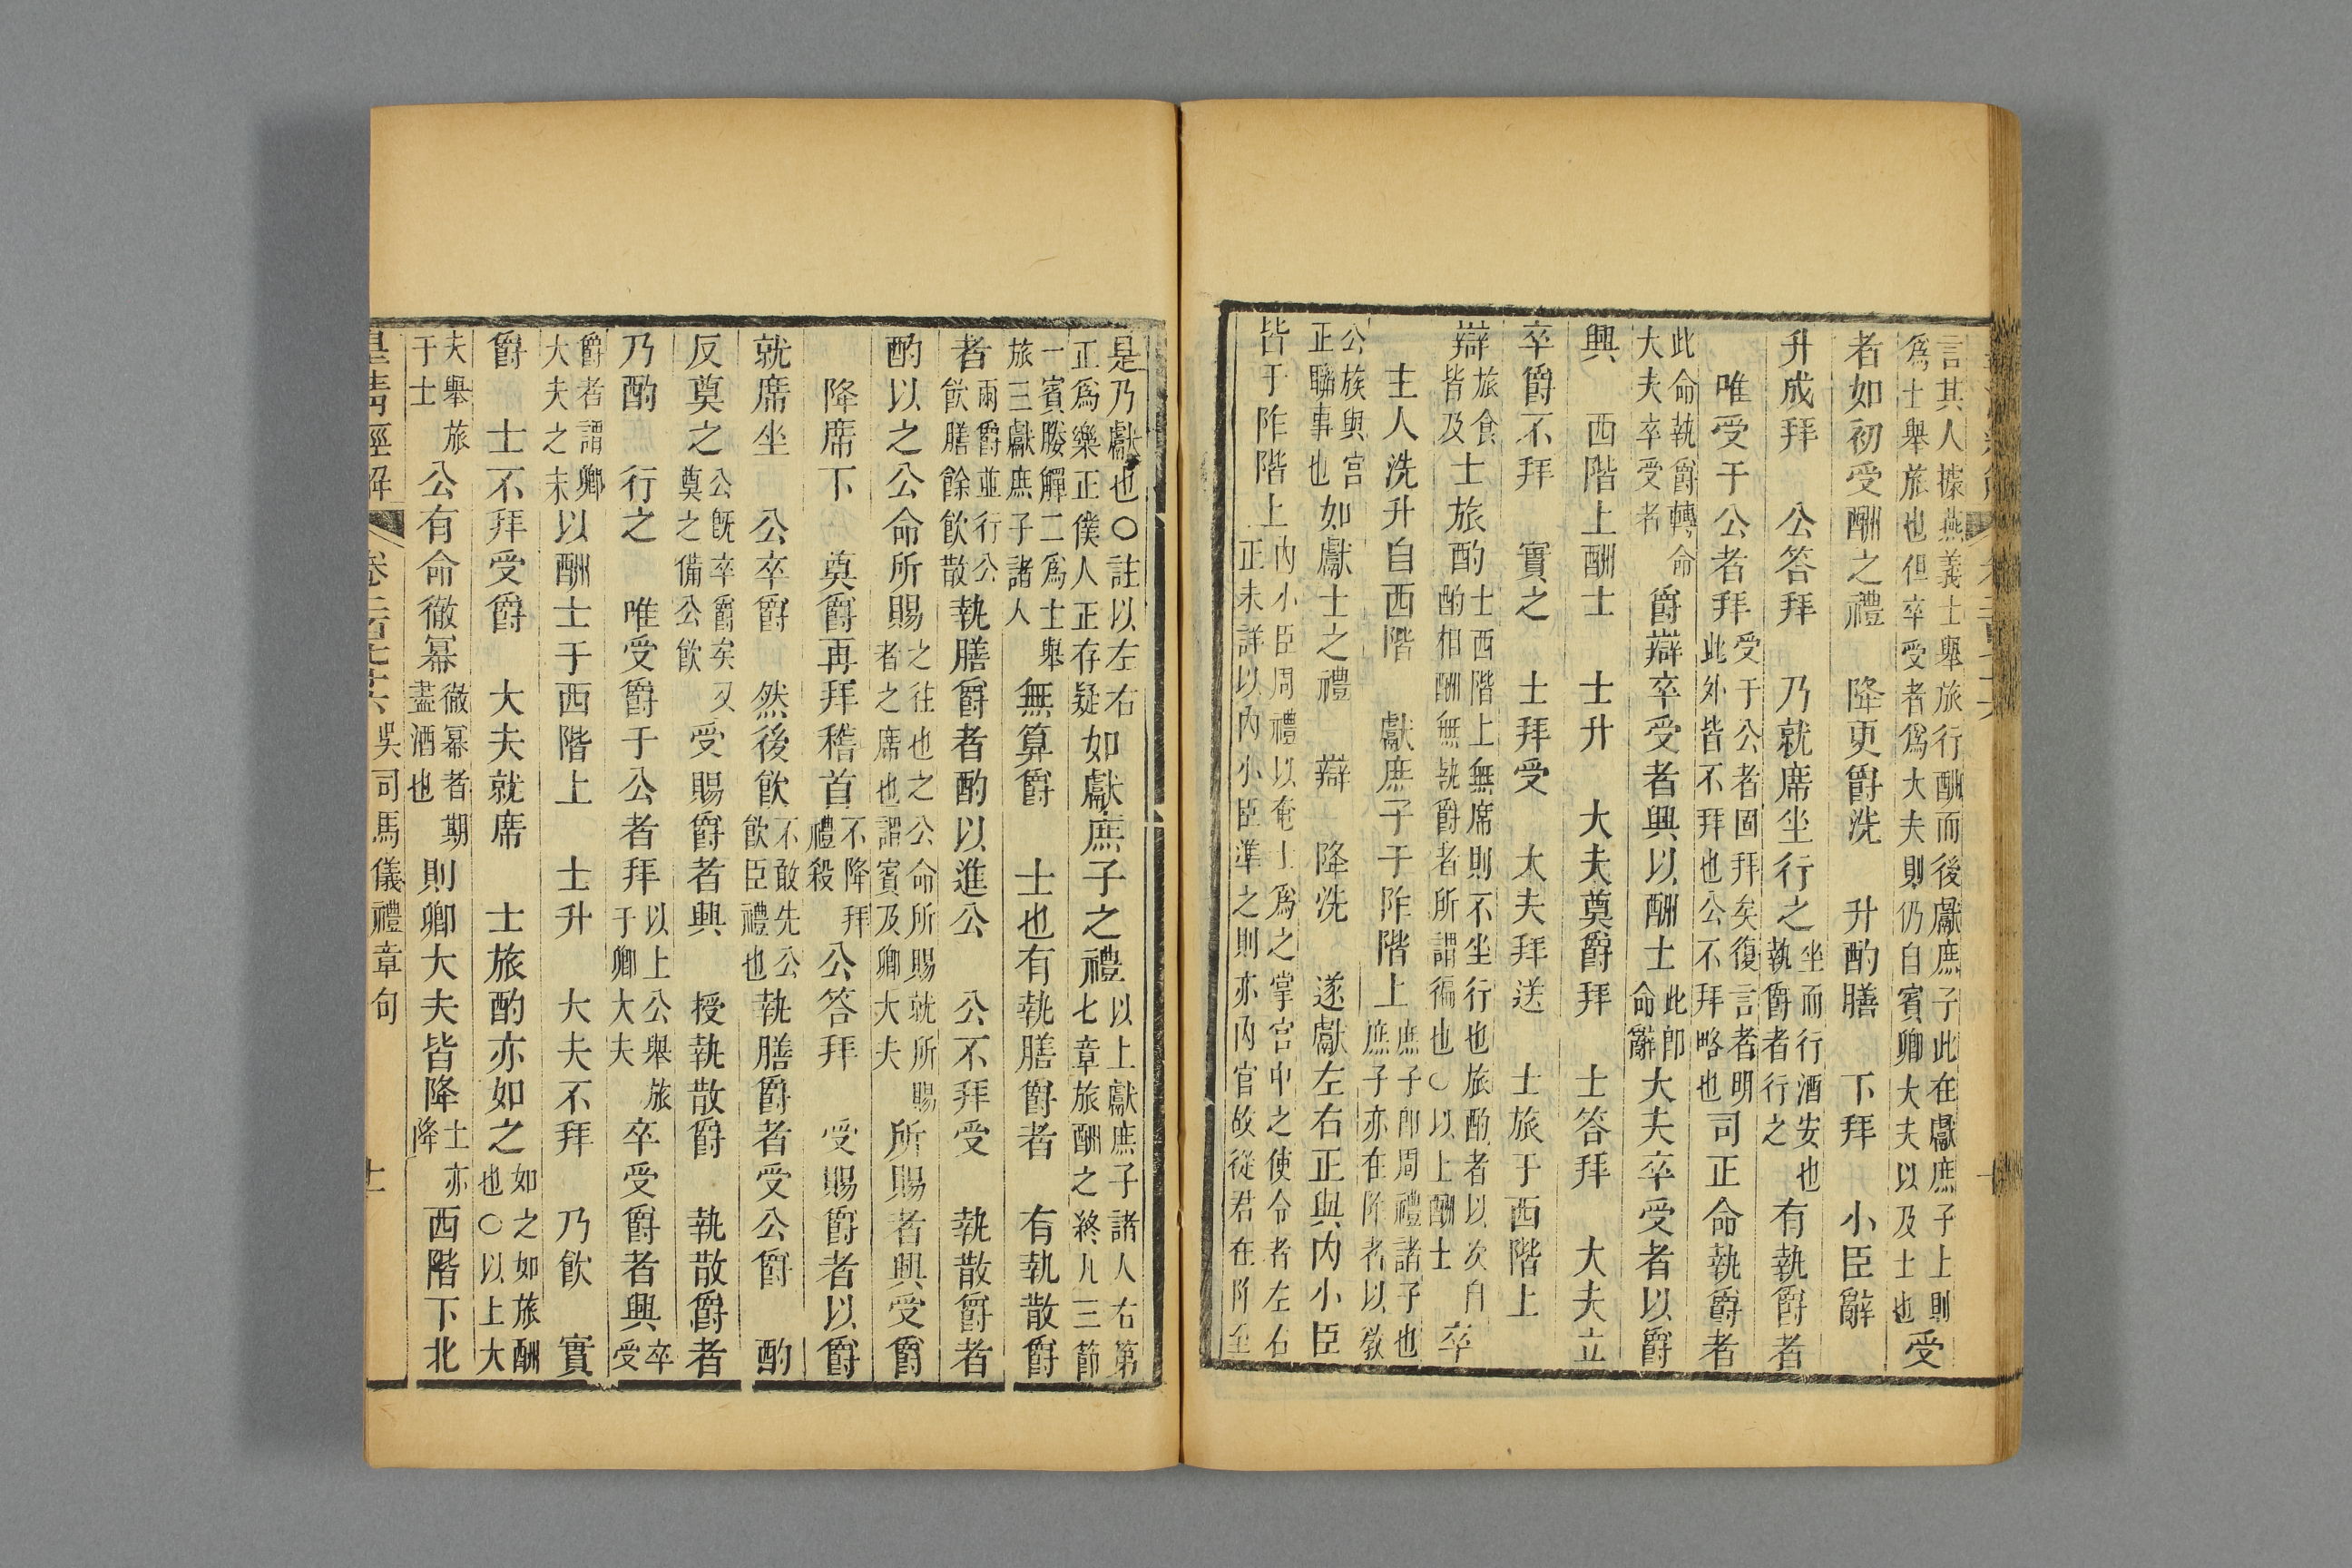 言其人據燕義士舉旅行酬而後獻庶子此在獻庶子上則
爲士舉旅也但卒受者爲大夫則仍自賓卿大夫以及士也
受
者如初受酬之禮 降更爵洗 升酌膳 下拜 小臣辭
升成拜 公答拜 乃就席坐行之
坐而行酒安也
執爵者行之
有執爵者
唯受于公者拜
受于公者固拜矣復言者明
此外皆不拜也公不拜略也
司正命執爵者
此命執爵轉命
大夫卒受者
爵辯卒受者興以酬士
此卽
命辭
大夫卒受者以爵
興 西階上酬士 士升 大夫奠爵拜 士答拜 大夫立
卒爵不拜 實之 士拜受 大夫拜送 士旅于西階上
辯
旅食
皆及
士旅酌
士西階上無席則不坐行也旅酌者以次自
酌相酬無執爵者所謂徧也○以上酬士
卒
主人洗升自西階 獻庶子于阼階上
庶子卽周禮諸子也
庶子亦在阼者以敎
公族與宮
正聯事也
如獻士之禮 辯 降洗 遂獻左右正與內小臣
皆于阼階上
內小臣周禮以奄士爲之掌宮中之使令者左右
正未詳以內小臣準之則亦內官故從君在阼全
是乃獻也○註以左右
正爲樂正僕人正存疑
如獻庶子之禮
以上獻庶子諸人右第
七章旅酬之終凡三節
一賓媵觶二爲士舉
旅三獻庶子諸人
無算爵 士也有執膳爵者 有執散爵
者
兩爵並行公
飮膳餘飮散
執膳爵者酌以進公 公不拜受 執散爵者
酌以之公命所賜
之往也之
者之席也
公命所賜就所賜
謂賓及卿大夫
所賜者興受爵
降席下 奠爵再拜稽首
不降拜
禮殺
公答拜 受賜爵者以爵
就席坐 公卒爵 然後飮
不敢先公
飮臣禮也
執膳爵者受公爵 酌
反奠之
公旣卒爵矣又
奠之備公飮
受賜爵者興 授執散爵 執散爵者
乃酌 行之 唯受爵于公者拜
以上公舉旅
于卿大夫
卒受爵者興
卒
受
爵者謂卿
大夫之末
以酬士于西階上 士升 大夫不拜 乃飮 實
爵 士不拜受爵 大夫就席 士旅酌亦如之
如之如旅酬
也○以上大
夫舉旅
于士
公有命徹冪
徹冪者期
盡酒也
則卿大夫皆降
士亦
降
西階下北
皇淸經解
卷二百七十六吳司馬儀禮章句
十一